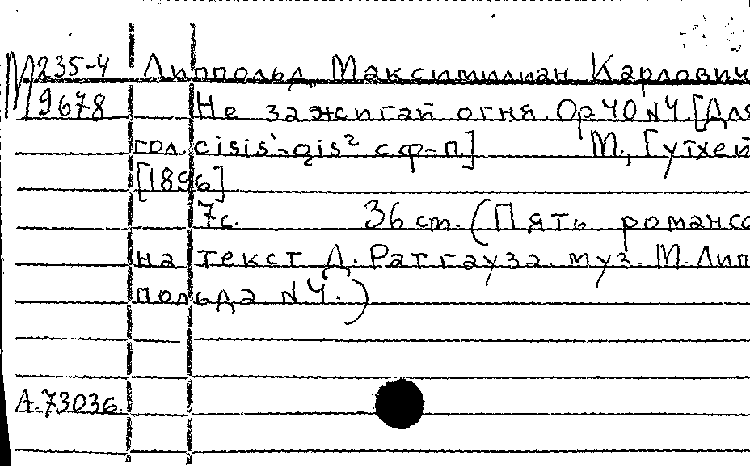 М235-4 Липпольд, Максимилиан Карлович
9678 Не зажигай огня. Ор 40 N4 [Для
гол. cisis¹-gis² с ф-п] М., Гутхей
[1896]
7с. 36 cm. (Пять романсо
на текст Д. Ратгауза муз. М. Лип-
польда N 4.)
А.73036.